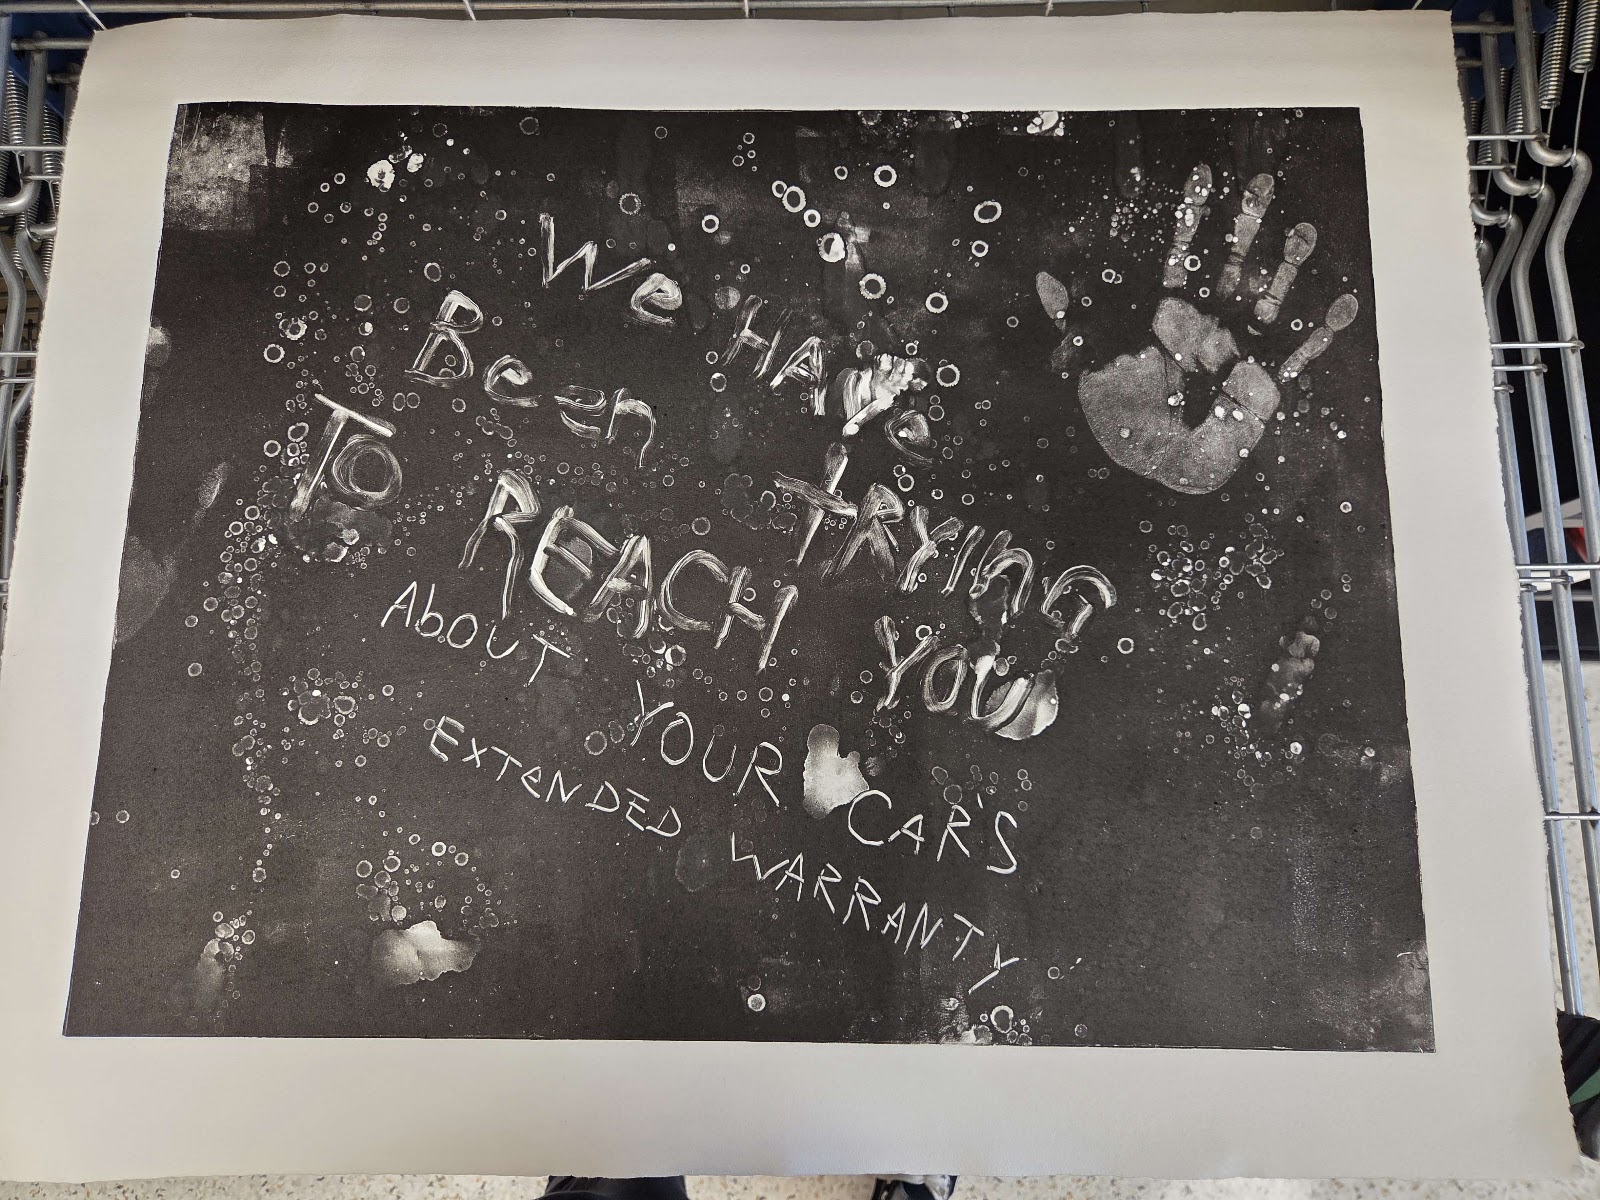 We HAve
Been TRYING
To REACH YOU
AboUT YOUR CAR'S
EXTENDED WARRANTY